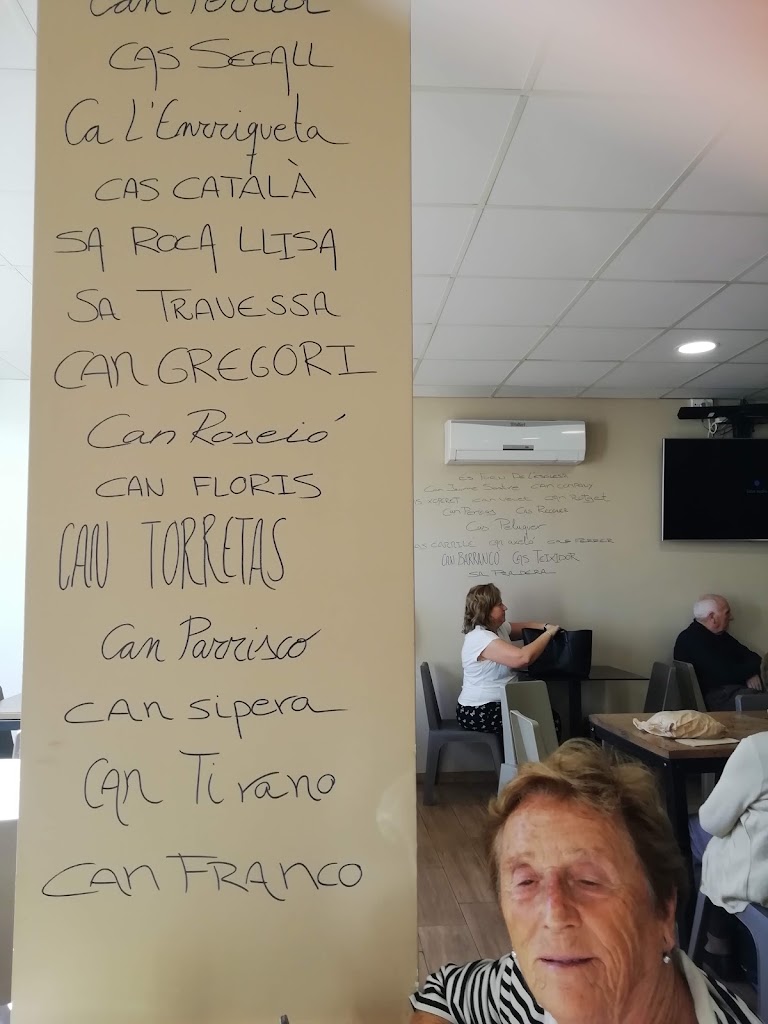 CAS SECALL
Ca L'Enrriqueta
CAS CATALÀ
SA ROCA LLISA
SA TRAVESSA
CAN GREGORI
Can Roseió
CAN FLORIS
CAN TORRETAS
Can Parrisco
CAN sipera
CAN Tirano
CAN FRANCO
Can Jaume
Cas Peluquer
CAN BARRANCO CAS TEIXIDOR